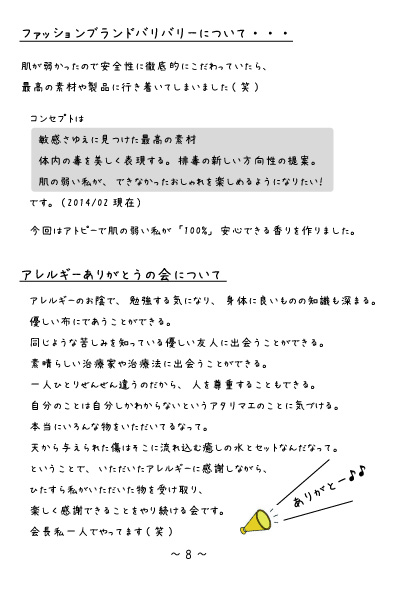 ファッションブランドバリバリーについて・・・
肌が弱かったので安全性に徹底的にこだわっていたら、
最高の素材や製品に行き着いてしまいました(笑)
コンセプトは
敏感さゆえに見つけた最高の素材
体内の毒を美しく表現する。排毒の新しい方向性の提案。
肌の弱い私が、できなかったおしゃれを楽しめるようになりたい!
です。(2014/02 現在)
今回はアトピーで肌の弱い私が「100%」安心できる香りを作りました。
アレルギーありがとうの会について
アレルギーのお陰で、勉強する気になり、身体に良いものの知識も深まる。
優しい布にであうことができる。
同じような苦しみを知っている優しい友人に出会うことができる。
素晴らしい治療家や治療法に出会うことができる。
一人ひとりぜんぜん違うのだから、人を尊重することもできる。
自分のことは自分しかわからないというアタリマエのことに気づける。
本当にいろんな物をいただいてるなって。
天から与えられた傷はそこに流れ込む癒しの水とセットなんだなって。
ということで、いただいたアレルギーに感謝しながら、
ひたすら私がいただいた物を受け取り、
楽しく感謝できることをやり続ける会です。
会長私一人でやってます(笑)
ありがとー♪♪
～8～